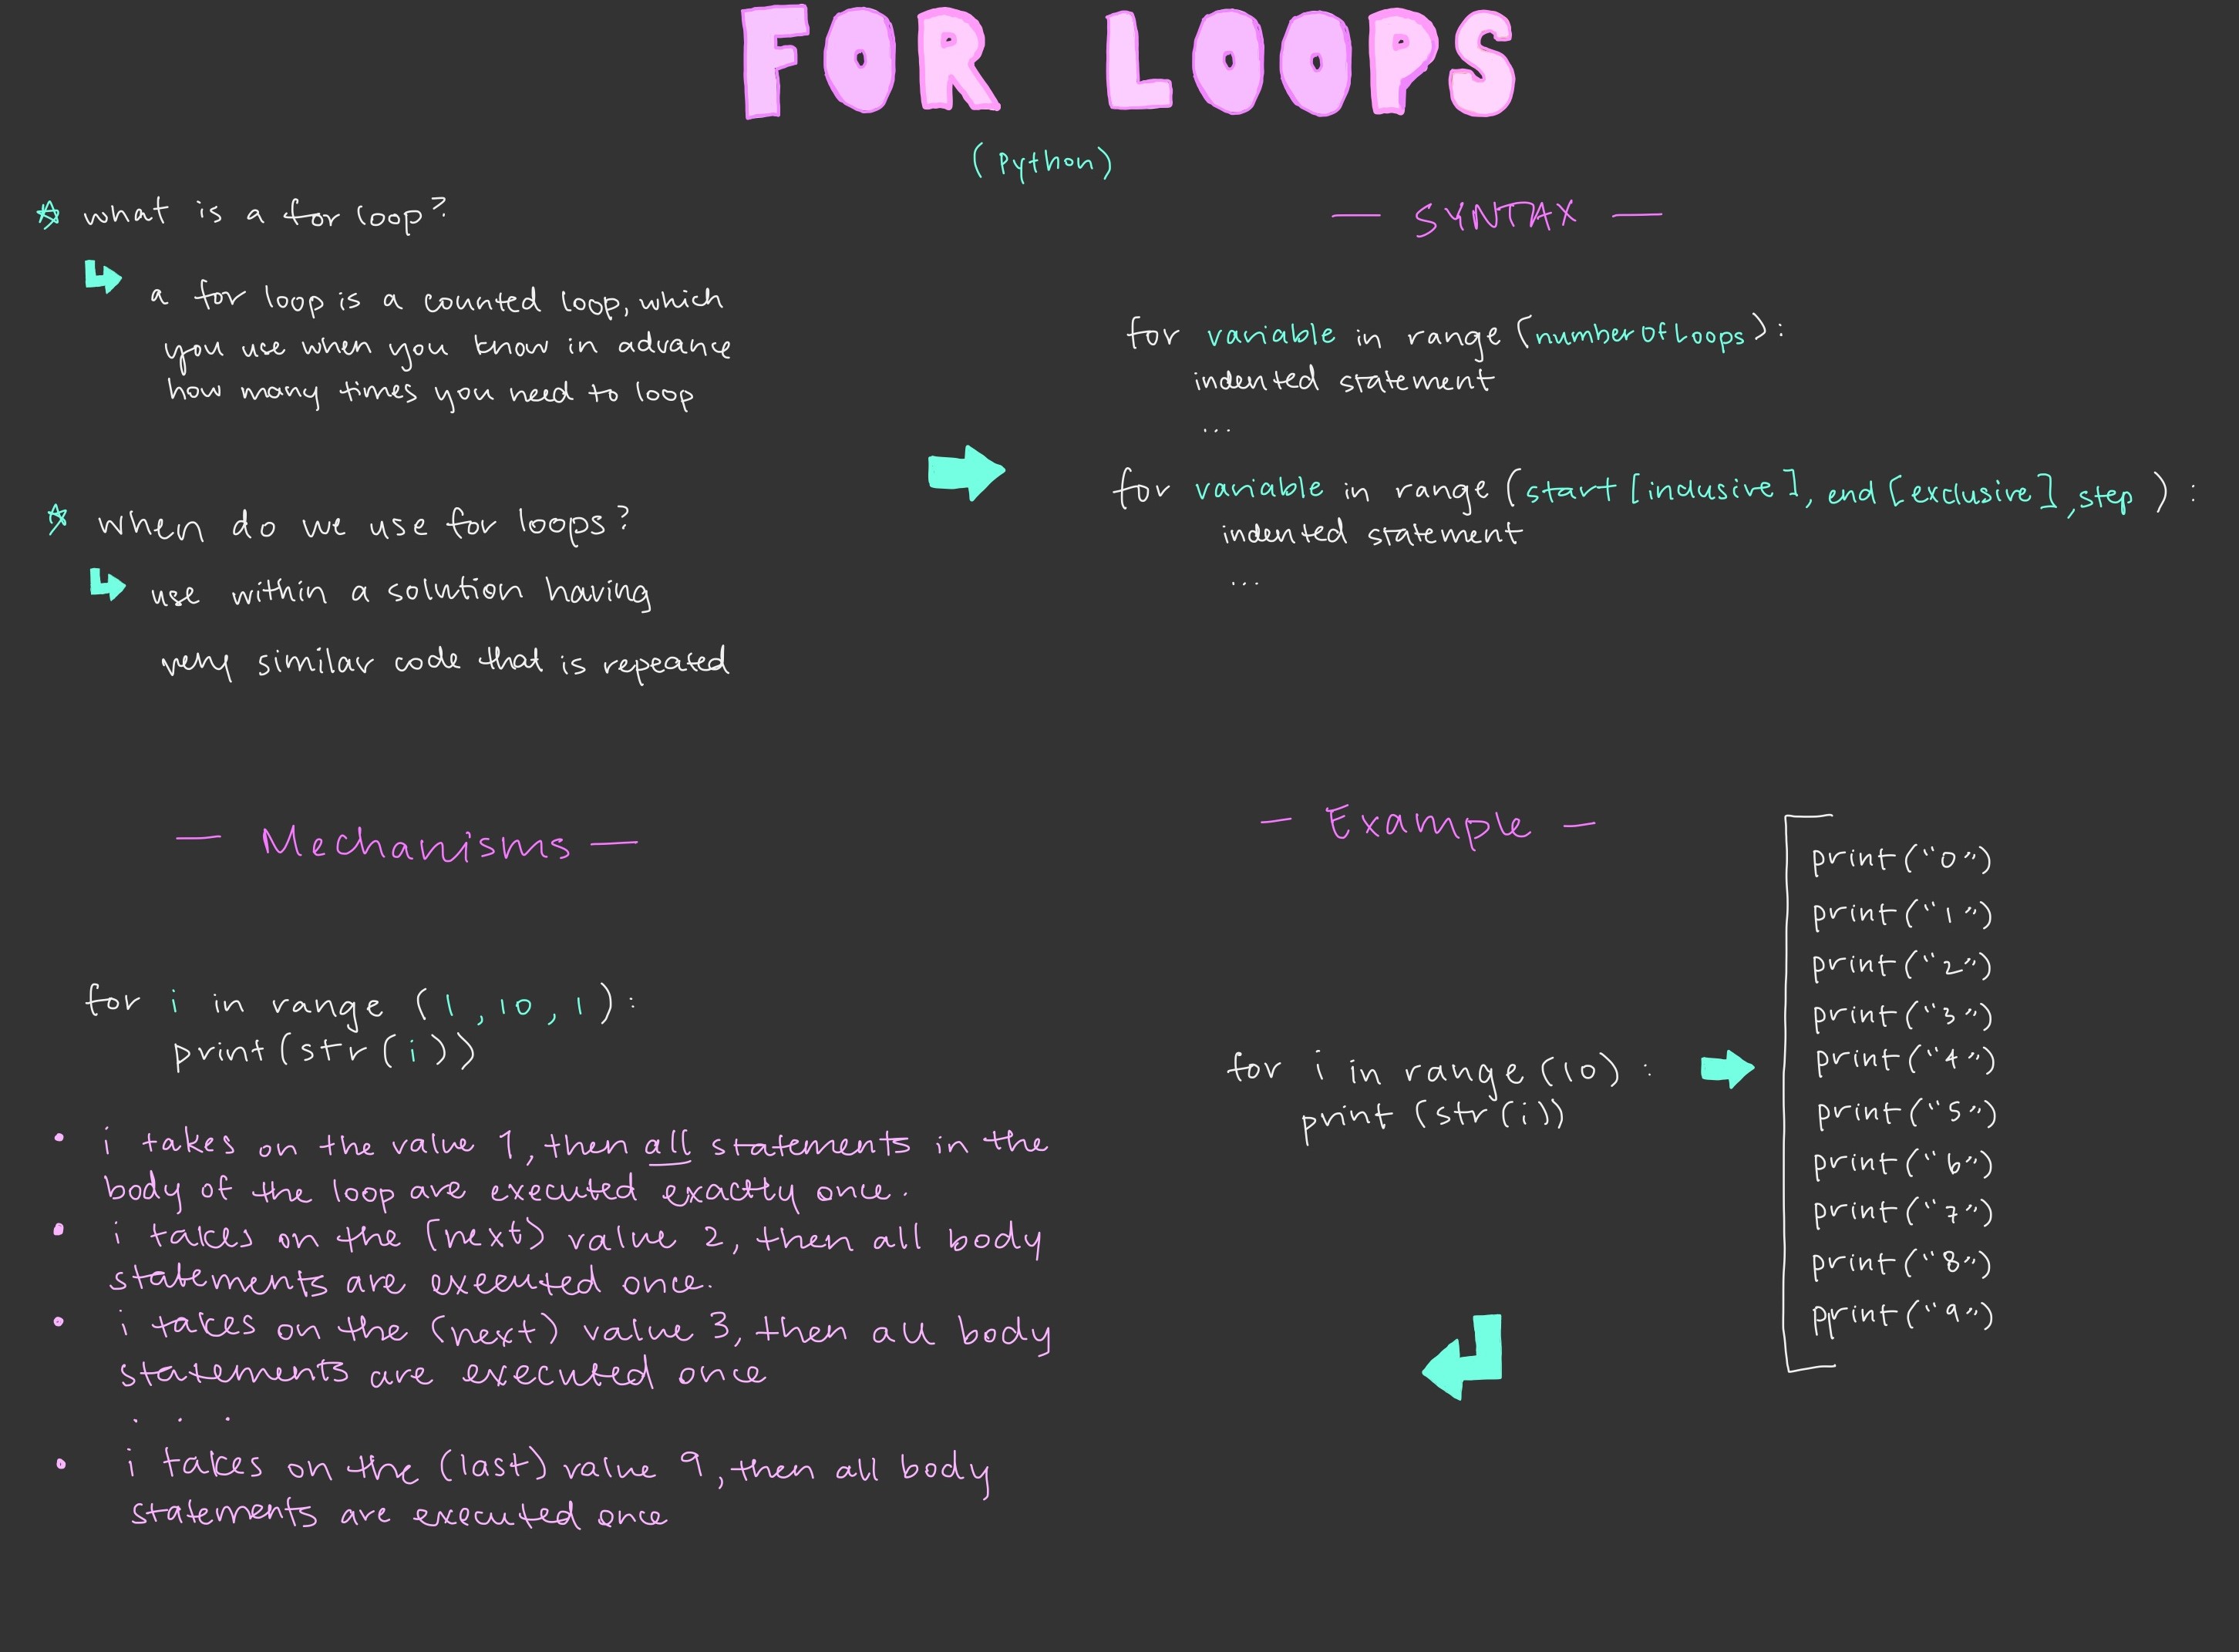 FOR LOOPS
(Python)
what is a for loop?
a for loop is a counted loop, which
you use when you know in advance
how many times you need to loop
when do we use for loops?
use within a solution having
very similar code that is repeated
— SYNTAX —
for variable in range (numberOfLoops):
indented statement
...
for variable in range (start [inclusive], end [exclusive], step ) :
indented statement
...
— Mechanisms —
for i in range (1, 10, 1):
print(str(i))
• i takes on the value 1, then all statements in the
body of the loop are executed exactly once.
• i takes on the (next) value 2, then all body
statements are executed once.
• i takes on the (next) value 3, then all body
statements are executed once
. . .
• i takes on the (last) value 9, then all body
statements are executed once
— Example —
for i in range (10) :
print (str(i))
print("0")
print("1")
print("2")
print("3")
print("4")
print("5")
print("6")
print("7")
print("8")
print("9")